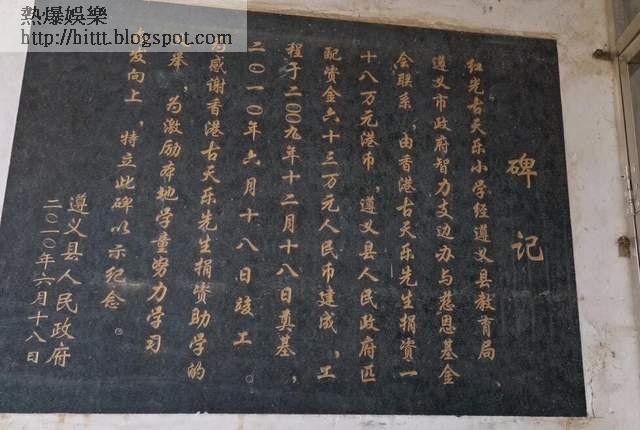 熱爆娛樂
http://hittt.blogspot.com
碑记
红光古天乐小学经遵义县教育局、
遵义市政府智力支边办与慈恩基金
会联系，由香港古天乐先生捐资一
十八万元港币，遵义县人民政府匹
配资金六十三万元人民币建成，工
程于二00九年十二月十八日奠基，
二0一0年六月十八日竣工。
为感谢香港古天乐先生捐资助学的
举，为激励本地学童努力学习
发向上，特立此碑以示纪念。
遵义县人民政府
二0一0年六月十八日